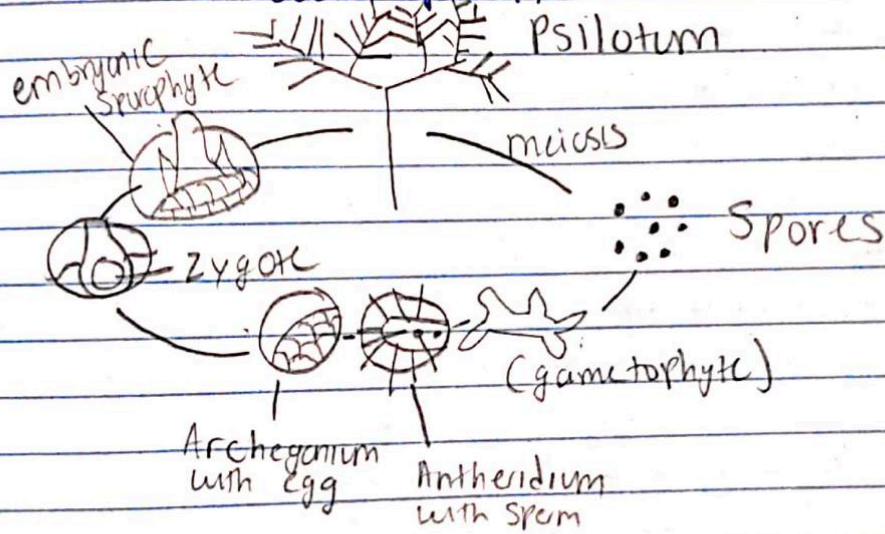 Psilotum
embryonic
sporophyte
meiosis
Spores
Zygote
(gametophyte)
Archegonium
with egg
Antheridium
with sperm